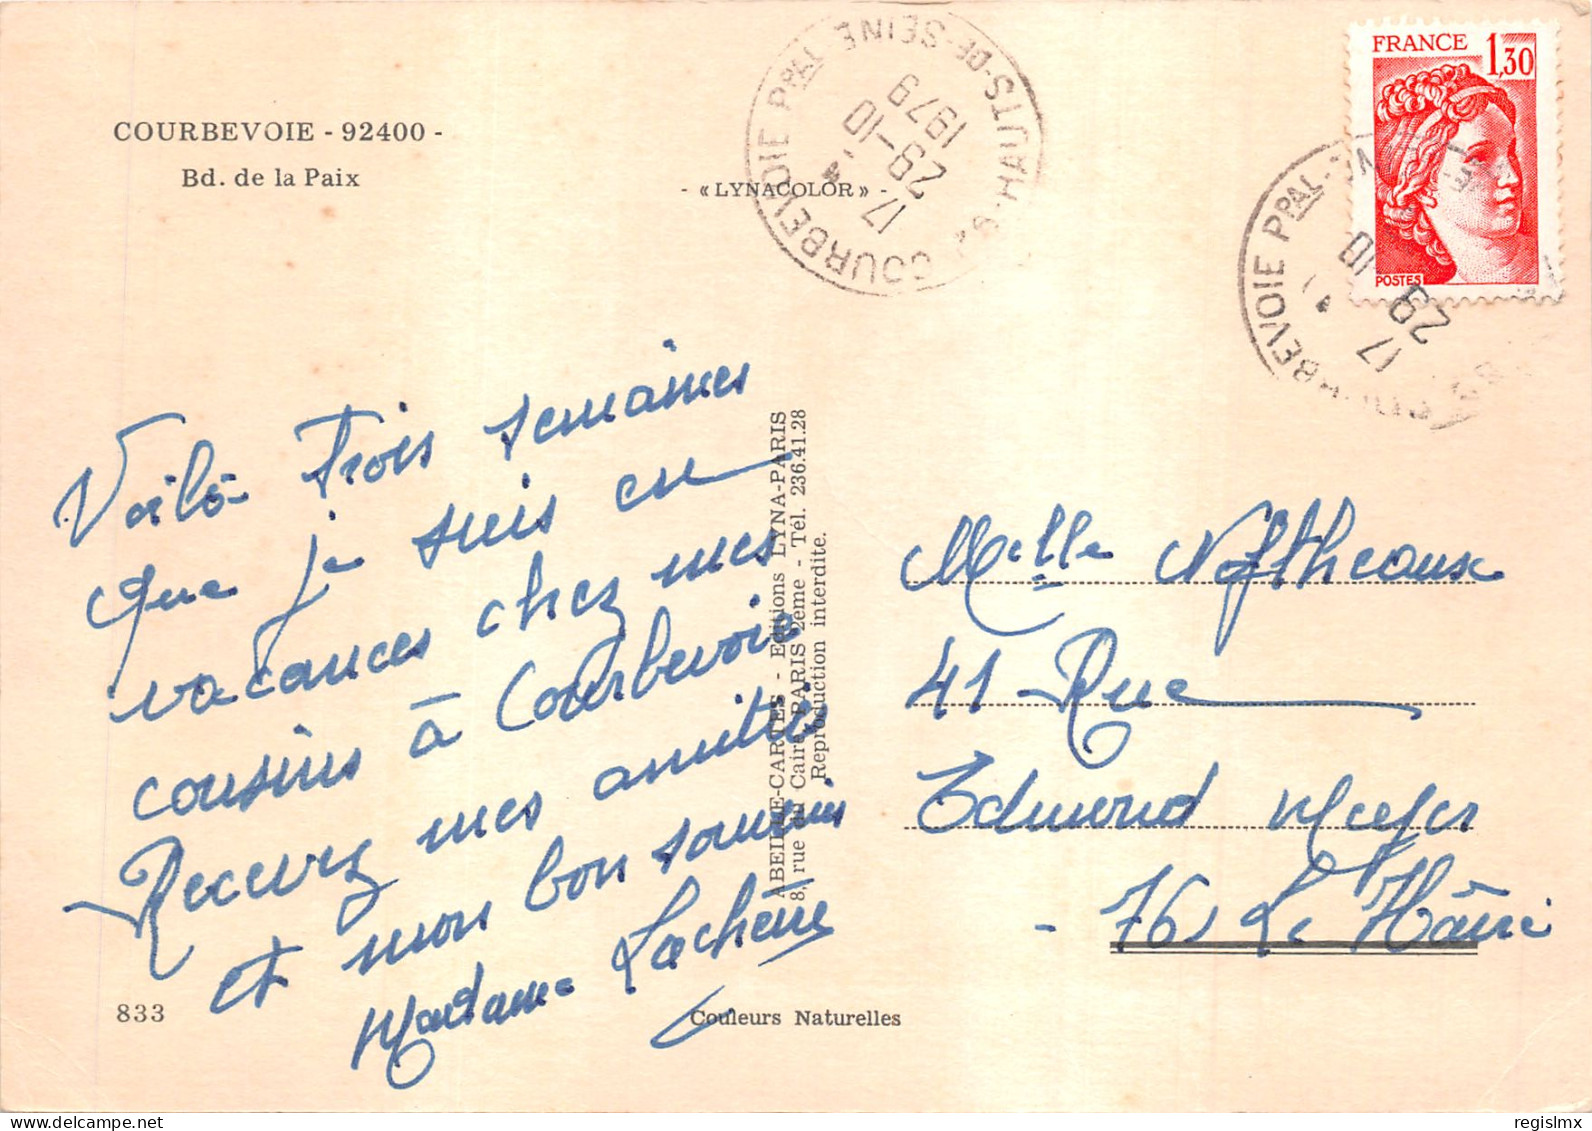 COURBEVOIE - 92400 -
Bd. de la Paix
- « LYNACOLOR » -
COURBEVOIE PPAL
HAUTS-DE-SEINE
17
29-10
1979
FRANCE 1,30
POSTES
BEVOIE PPAL
17
29 10
Voilà trois semaines
que je suis en
vacances chez mes
cousins à Courbevoie
Recevez mes amitiés
et mon bon souvenir
Madame Lachèvre
ABEILLE-CARTES - Editions LYNA-PARIS
8, rue du Caire PARIS 2ème - Tél. 236.41.28
Reproduction interdite.
Melle
41 Rue
Edmond Meyer
- 76 Le Hâvre
833
Couleurs Naturelles
delcampe.net
regislmx